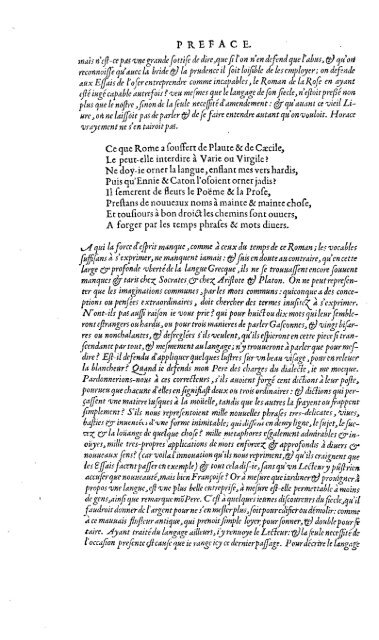 PREFACE.
mais n'est-ce pas vne grande sottise de dire, que si l'on n'en defend que l'abus, & qu'on
reconnoisse qu'auec la bride & la prudence il soit loisible de les employer; on defende
aux Essais de l'oser entreprendre comme incapables, le Roman de la Rose en ayant
esté iugé capable autrefois? veu mesmes que le langage de son siecle, n'estoit pressé non
plus que le nostre, sinon de la seule necessité d'amendement: & qu'auant ce vieil Li-
ure, on ne laissoit pas de parler & de se faire entendre autant qu'on vouloit. Horace
vrayement ne s'en tairoit pas.
Ce que Rome a souffert de Plaute & de Cæcile,
Le peut-elle interdire à Varie ou Virgile?
Ne doy-ie orner la langue, enflant mes vers hardis,
Puis qu'Ennie & Caton l'osoient orner jadis?
Il semerent de fleurs le Poëme & la Prose,
Prestans de nouueaux noms à mainte & mainte chose,
Et tousiours à bon droict les chemins sont ouuers,
A forger par les temps phrases & mots diuers.
A qui la force d'esprit manque, comme à ceux du temps de ce Roman; les vocables
suffisans à s'exprimer, ne manquent iamais: & suis en doute au contraire, qu'en cette
large & profonde vberté de la langue Grecque, ils ne se trouuassent encore souuent
manques & taris chez Socrates & chez Aristote & Platon. On ne peut represen-
ter que les imaginations communes, par les mots communs: quiconque a des conce-
ptions ou pensées extraordinaires, doit chercher des termes inusitez à s'exprimer.
N'ont-ils pas aussi raison ie vous prie? qui pour huict ou dix mots qui leur semble-
ront estrangers ou hardis, ou pour trois manieres de parler Gasconnes, & vingt bisar-
res ou nonchalantes, & desreglées s'ils veulent, qu'ils espieront en cette piece si tran-
scendante par tout, & mesmement au langage; n'y trouueront à parler que pour mes-
dire? Est-il defendu d'appliquer quelques lustres sur vn beau visage, pour en releuer
la blancheur? Quand ie defends mon Pere des charges du dialecte, ie me mocque.
Pardonnerions-nous à ces correcteurs, s'ils auoient forgé cent dictions à leur poste,
pourueu que chacune d'elles en signifiast deux ou trois ordinaires: & dictions qui per-
çassent vne matiere iusques à la moüelle, tandis que les autres la frayent ou frappent
simplement? S'ils nous representoient mille nouuelles phrases tres-delicates, viues,
basties & inuentées d'vne forme inimitable; qui dissent en demy ligne, le sujet, le suc-
cez & la loüange de quelque chose? mille metaphores esgalement admirables & in-
oüyes, mille tres-propres applications de mots enforcez & approfondis à diuers &
nouueaux sens? (car voila l'innouation qu'ils nous reprimement, & qu'ils craignent que
les Essais facent passer en exemple) & tout cela dis-ie, sans qu'vn Lecteur y peust rien
accuser que nouueauté, mais bien Françoise? Or à mesure que iardiner & prouigner à
propos vne langue, est vne plus belle entreprise, à mesure est elle permettable à moins
de gens, ainsi que remarque mō Pere. C'est à quelques ieunes discoureurs du siecle, qu'il
faudroit donner de l'argent pour ne s'en mesler plus, soit pour edifier ou démolir: comme
à ce mauuais fluteur antique, qui prenoit simple loyer pour sonner, & double pour se
taire. Ayant traité du langage ailleurs, i'y renuoye le Lecteur: & la seule necessité de
l'occasion presente est cause que ie range icy ce dernier passage. Pour décrire le langage